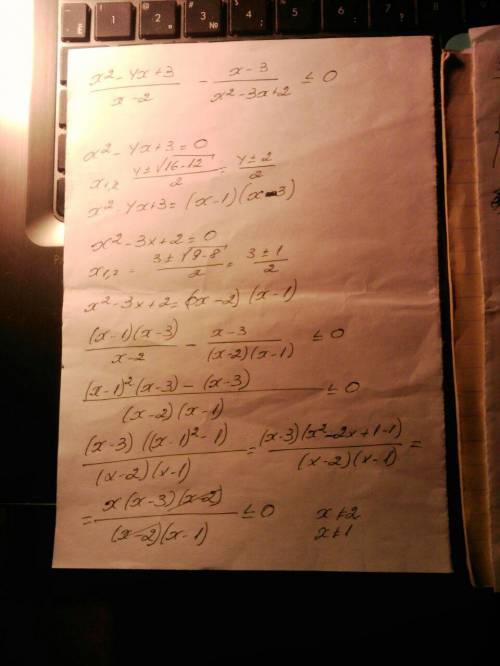 (x² - 4x + 3)/(x - 2) - (x - 3)/(x² - 3x + 2) ≤ 0
x² - 4x + 3 = 0
x₁,₂ (4 ± √(16 - 12))/2 = (4 ± 2)/2
x² - 4x + 3 = (x - 1)(x - 3)
x² - 3x + 2 = 0
x₁,₂ = (3 ± √(9 - 8))/2 = (3 ± 1)/2
x² - 3x + 2 = (x - 2)(x - 1)
((x - 1)(x - 3))/(x - 2) - (x - 3)/((x - 2)(x - 1)) ≤ 0
((x - 1)²(x - 3) - (x - 3))/((x - 2)(x - 1)) ≤ 0
((x - 3)((x - 1)² - 1))/((x - 2)(x - 1)) = ((x - 3)(x² - 2x + 1 - 1))/((x - 2)(x - 1)) =
= (x(x - 3)(x - 2))/((x - 2)(x - 1)) ≤ 0 x ≠ 2
x ≠ 1